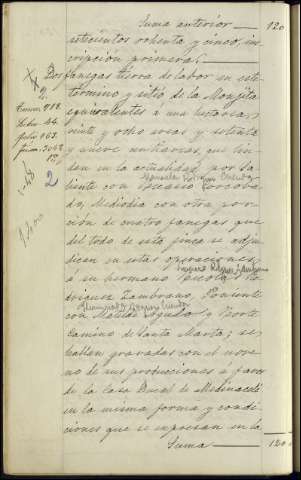 Suma anterior — 120
setecientos ochenta y cinco, ins
cripción primera.
Dos fanegas tierra de labor en este
término y sitio de la Monjita
equivalentes a una hectárea,
veinte y ocho areas y setenta
y nueve centiareas, que lin
dan en la actualidad por Sa
liente con Córdoba
do, Mediodia con otra por
ción de cuatro fanegas que
del todo de esta finca se adju
dican en estas operaciones
á su hermano Nicolas Ro
driguez Zambrano, Poniente
con Matilde y Norte
Camino de Santa Marta; se
hallan gravadas con el nove
no de sus producciones a favor
de la Casa Ducal de Medinaceli
en la misma forma y condi
ciones que se expresan en la
Suma — 120
2.
Tomo, 788.
Libro 24.
Folio 163.
2